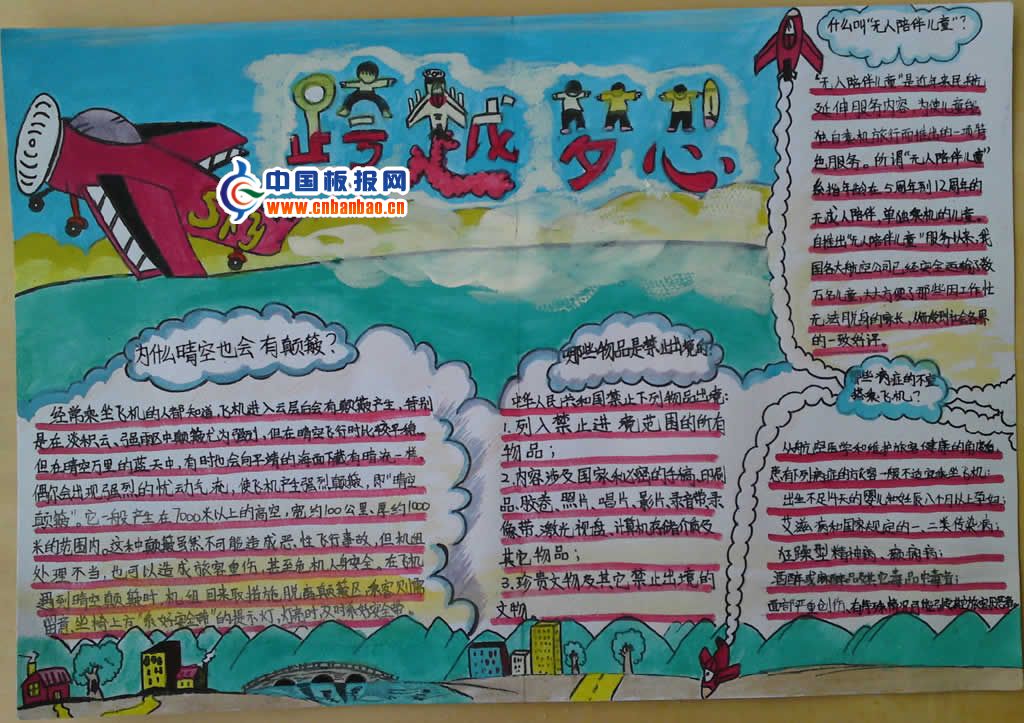 跨越梦想
Sky
中国板报网
www.cnbanbao.cn
什么叫“无人陪伴儿童”?
“无人陪伴儿童”是近年来民航
延伸服务内容,为使儿童能
独自乘机旅行而推出的一项特
色服务。所谓“无人陪伴儿童”
系指年龄在5周年到12周年的
无成人陪伴、单独乘机的儿童。
自推出“无人陪伴儿童”服务以来,我
国各大航空公司已经安全运输了数
万名儿童,大大方便了那些因工作忙
无法脱身的家长,
的一致好评。
为什么晴空也会有颠簸?
经常乘坐飞机的人都知道,飞机进入云层后会有颠簸产生,特别
是在淡积云、强雨区中颠簸尤为强烈,但在晴空飞行时比较平稳。
但在晴空万里的蓝天中,有时也会向平靖的海面下藏有暗流一样
偶尔会出现强烈的忧动气流,使飞机产生强烈颠簸,即“晴空
颠簸”。它一般产生在7000米以上的高空,宽约100公里、厚约1000
米的范围内。这种颠簸虽然不可能造成恶性飞行事故,但机组
处理不当,也可以造成旅客重伤,甚至危机人身安全。在飞机
遇到晴空颠簸时,机组回采取措施,脱离颠簸区,乘客则需
留意坐椅上方“系好安全带”的提示灯,灯亮时及时系好安全带。
哪些物品是禁止出境的?
中华人民共和国禁止下列物品出境:
1.列入禁止进境范围的所有
物品;
2.内容涉及国家和必密的手稿、印刷
品、胶卷、照片、唱片、影片、录音带、录
像带、激光视盘、计算机存储介质及
其它物品;
3.珍贵文物及其它禁止出境的
文物。
些病症的不宜
搭乘飞机」?
从航空医学和维护旅客健康的角度
患有列病症的旅客一般不适宜乘坐飞机:
出生不足14天的婴儿和妊辰八个月以上孕妇;
艾滋病和国家规定的一、二类传染病;
狂躁型精神病、癫痫病;
酒醉或麻醉品及其它毒品中毒者;
面部严重创伤,